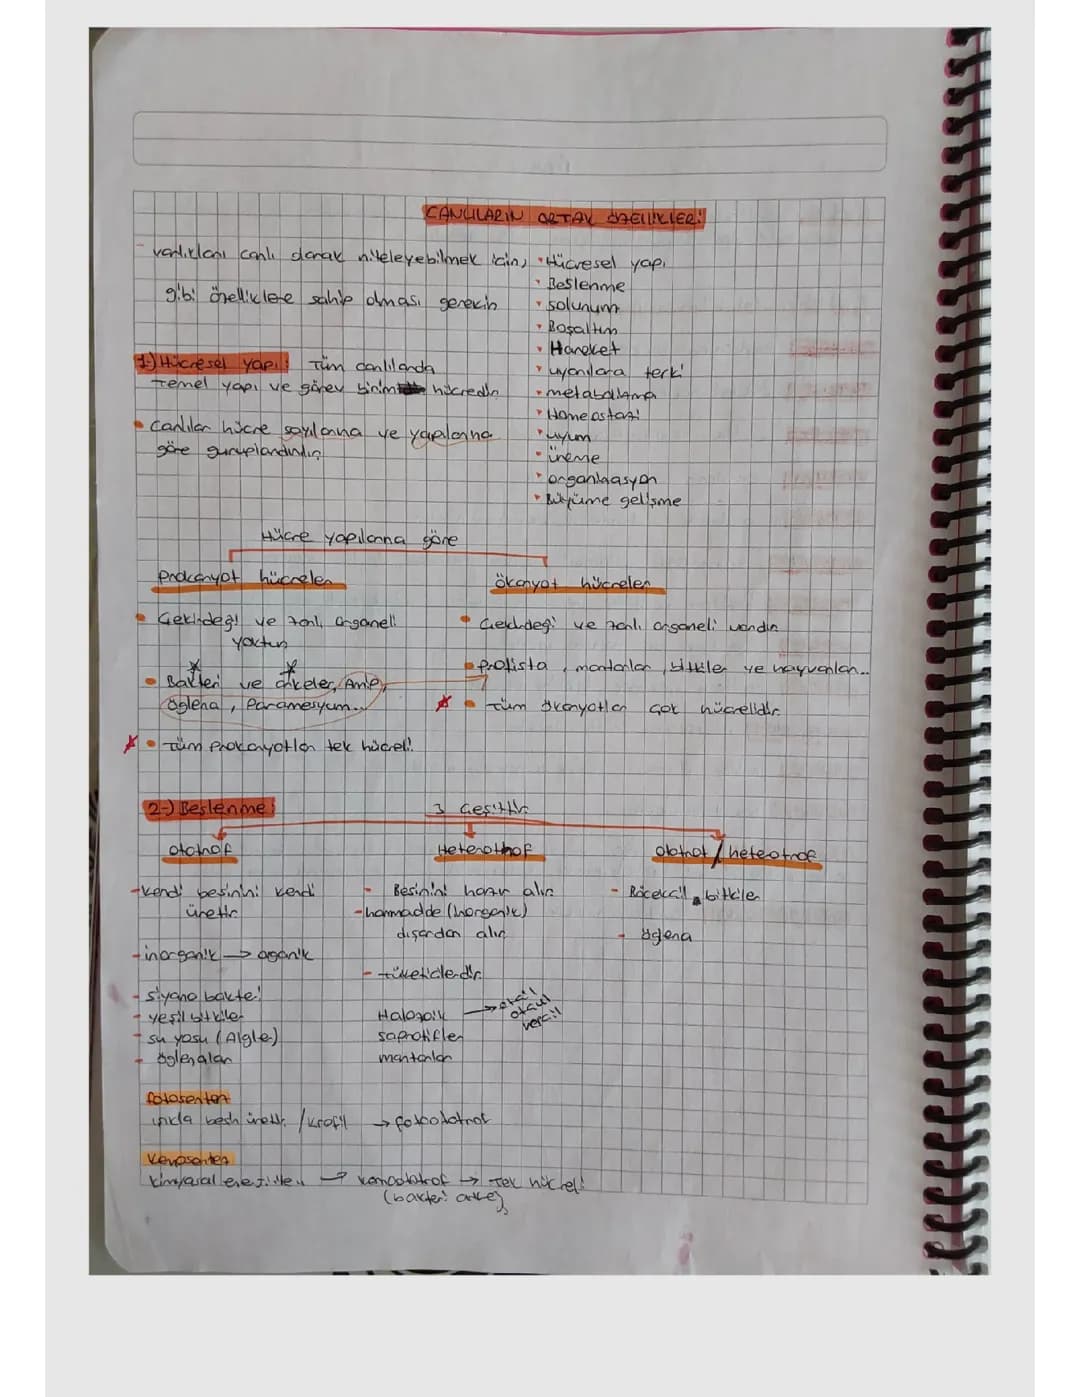 CANLILARIN ORTAK ÖZELLİKLERİ
- varlıkları canlı olarak niteleyebilmek için,
gibi özelliklere sahip olması gerekir
• Hücresel yapı
• Beslenme
• solunum
• Boşaltım
• Hareket
• uyarılara tepki
• metabolizma
• Homeostazi
• uyum
• üreme
• organizasyon
• Büyüme gelişme
1-) Hücresel yapı: Tüm canlılarda
temel yapı ve görev birimi hücredir
• Canlılar hücre sayılarına ve yapılarına
göre guruplandırılır
Hücre yapılarına göre
prokaryot hücreler
ökaryot hücreler
• Çekirdeği ve zarlı organeli
yoktur
• Bakteri ve arkeler, Amip,
öglena, Paramesyum...
• Tüm prokaryotlar tek hücreli
• Çekirdeği ve zarlı organeli vardır
• protista, mantarlar, bitkiler ve hayvanlar..
• Tüm ökaryotlar çok hücrelidir
2-) Beslenme:
3 çeşittir
ototrof
Heterothof
ototrof / heteotrof
- kendi besinini kendi
üretir
- inorganik → oganik
- siyano bakteri
- yeşil bitkiler
- su yosu (Algler)
- öglenalar
- Besinini hazır alır
- hammadde (inorganik)
dışardan alır
- tüketicilerdir
Holozoik → otçil
etçul
hepçil
saprofitler
mantarlar
- Böcekçil bitkiler
- öglena
fotosentez
ışıkla besin üretir. / krofil → fotoototrof
Kemosentez
kimyasal enerjiden → kemoototrof → Tek hücreli
(bakteri arke)